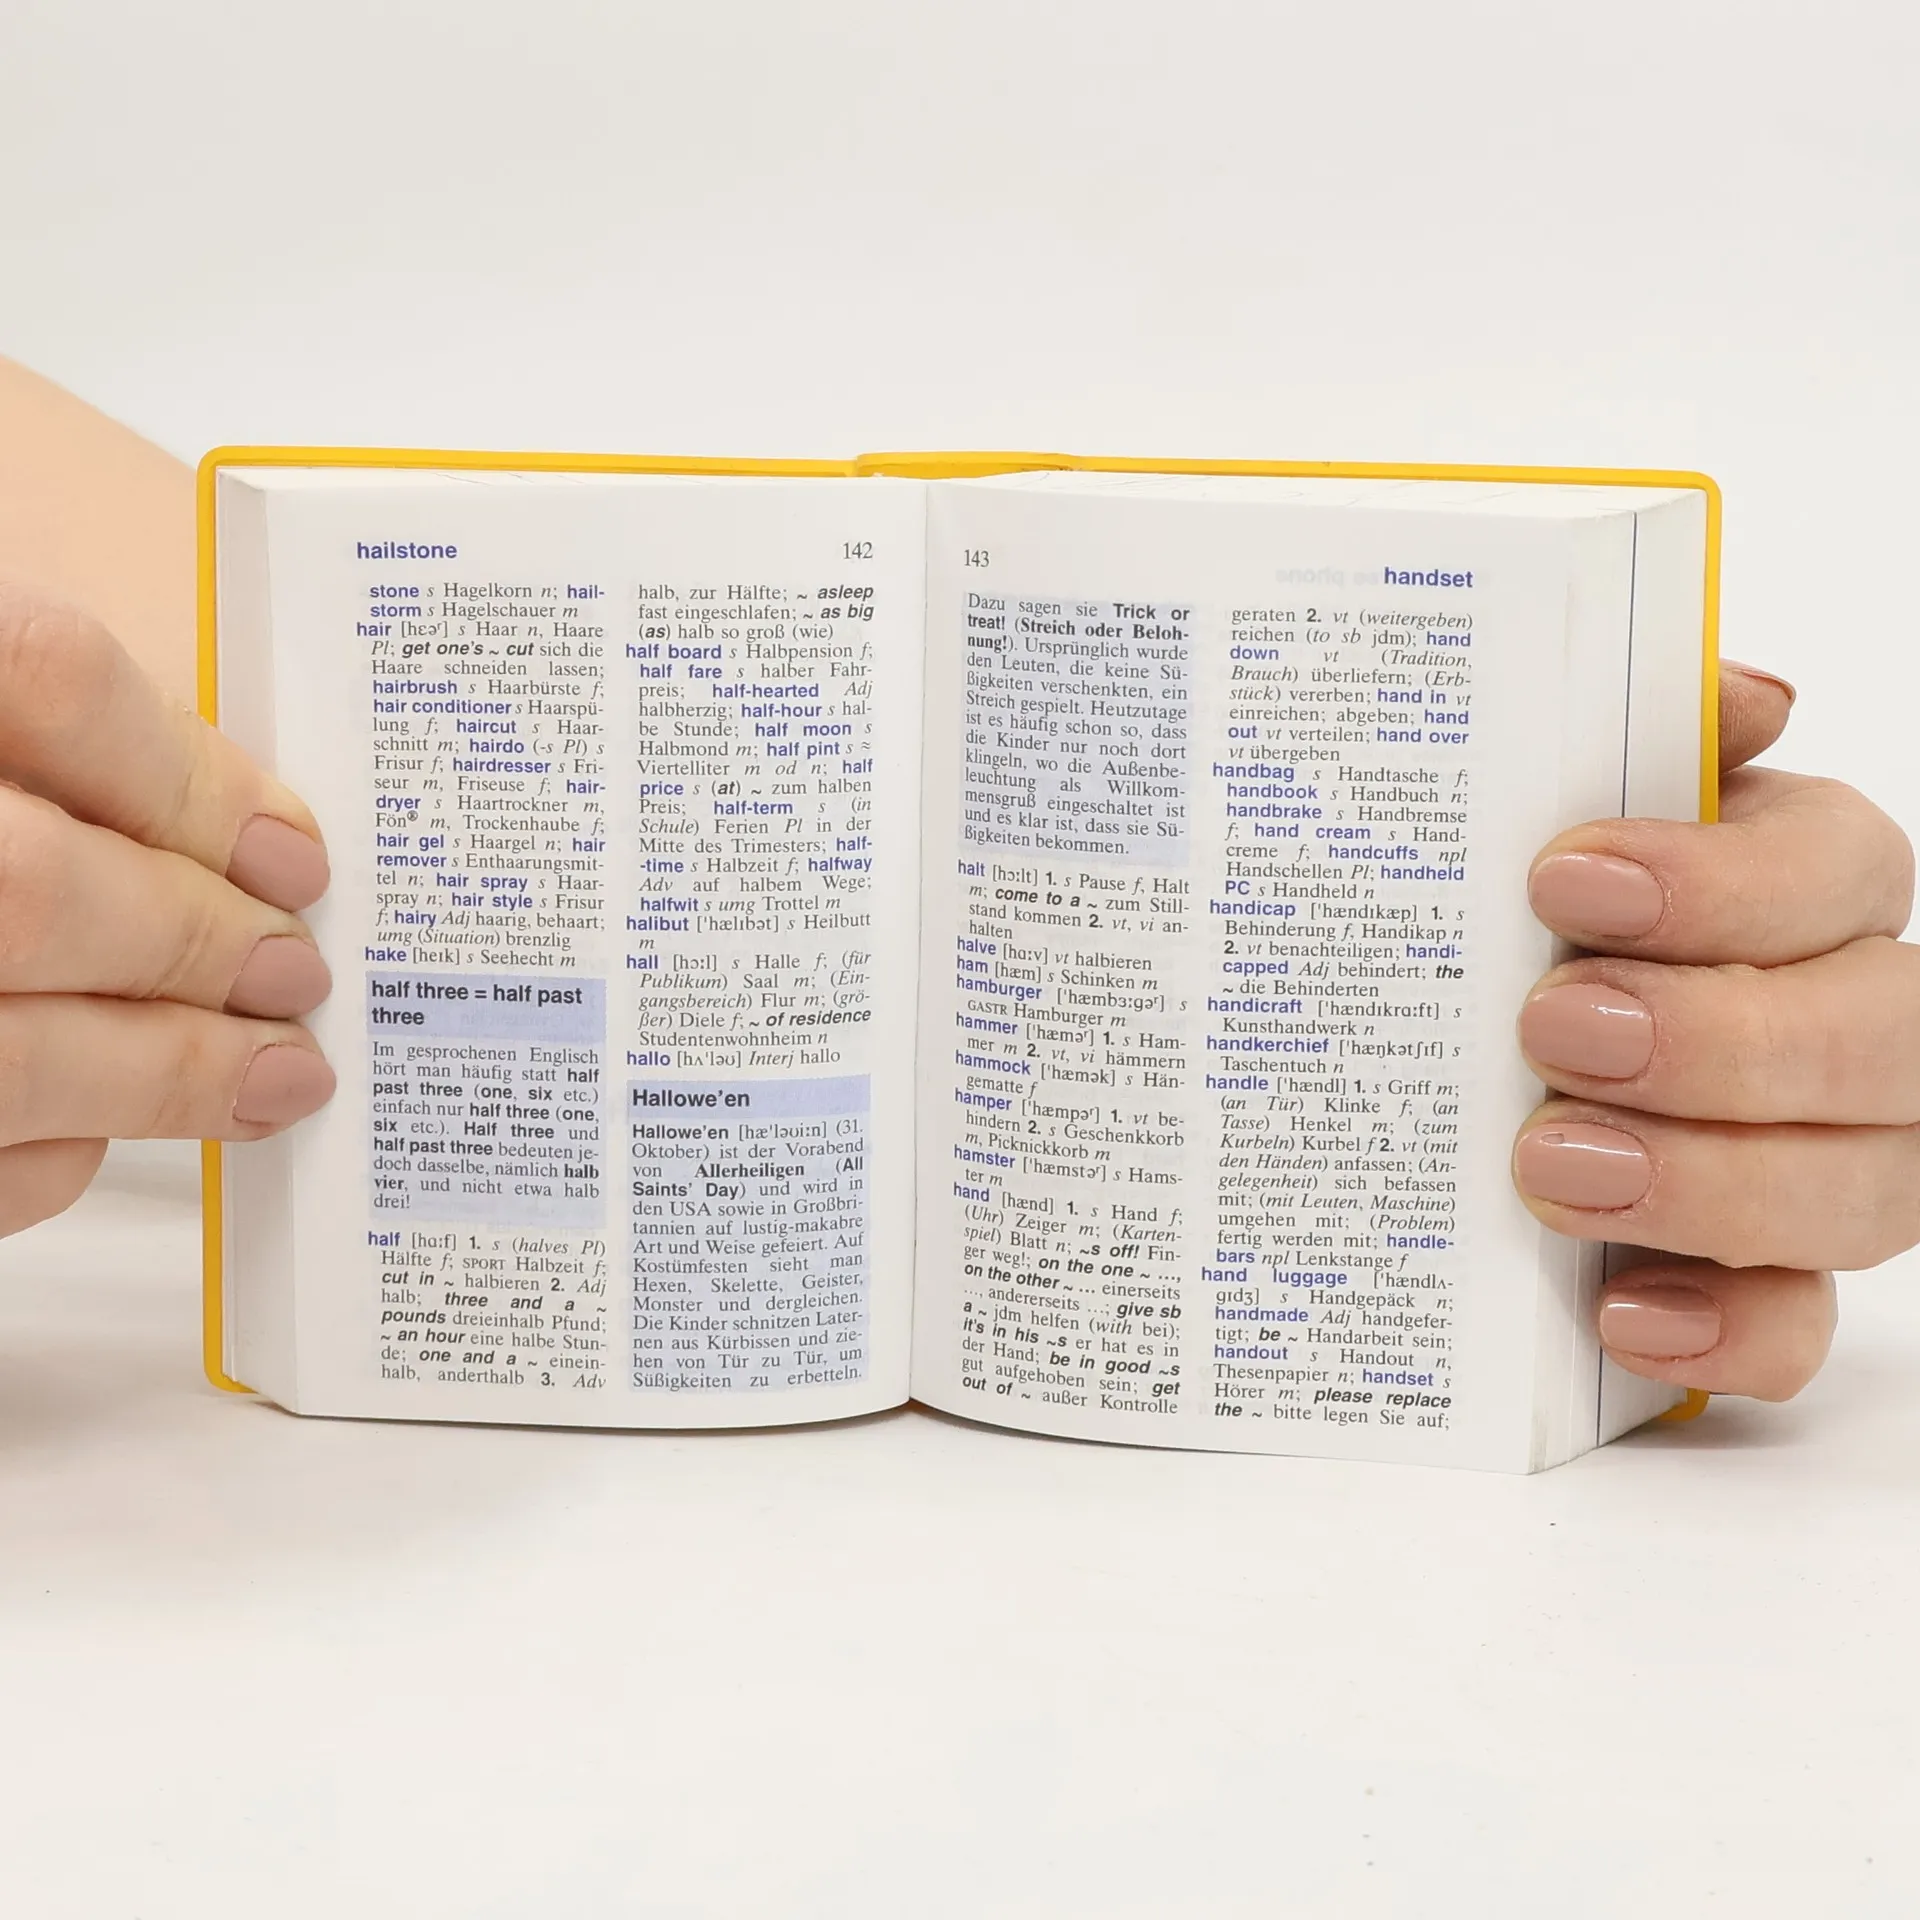 hailstone 142
stone s Hagelkorn n; hail-
storm s Hagelschauer m
hair [hɛəʳ] s Haar n, Haare
Pl; get one's ~ cut sich die
Haare schneiden lassen;
hairbrush s Haarbürste f;
hair conditioner s Haarspü-
lung f; haircut s Haar-
schnitt m; hairdo (-s Pl) s
Frisur f; hairdresser s Fri-
seur m, Friseuse f; hair-
dryer s Haartrockner m,
Fön® m, Trockenhaube f;
hair gel s Haargel n; hair
remover s Enthaarungsmit-
tel n; hair spray s Haar-
spray n; hair style s Frisur
f; hairy Adj haarig, behaart;
umg (Situation) brenzlig
hake [heɪk] s Seehecht m
half three = half past
three
Im gesprochenen Englisch
hört man häufig statt half
past three (one, six etc.)
einfach nur half three (one,
six etc.). Half three und
half past three bedeuten je-
doch dasselbe, nämlich halb
vier, und nicht etwa halb
drei!
half [hɑːf] 1. s (halves Pl)
Hälfte f; SPORT Halbzeit f;
cut in ~ halbieren 2. Adj
halb; three and a ~
pounds dreieinhalb Pfund;
~ an hour eine halbe Stun-
de; one and a ~ einein-
halb, anderthalb 3. Adv
halb, zur Hälfte; ~ asleep
fast eingeschlafen; ~ as big
(as) halb so groß (wie)
half board s Halbpension f;
half fare s halber Fahr-
preis; half-hearted Adj
halbherzig; half-hour s hal-
be Stunde; half moon s
Halbmond m; half pint s ≈
Viertelliter m od n; half
price s (at) ~ zum halben
Preis; half-term s (in
Schule) Ferien Pl in der
Mitte des Trimesters; half-
-time s Halbzeit f; halfway
Adv auf halbem Wege;
halfwit s umg Trottel m
halibut ['hælɪbət] s Heilbutt
m
hall [hɔːl] s Halle f; (für
Publikum) Saal m; (Ein-
gangsbereich) Flur m; (grö-
ßer) Diele f; ~ of residence
Studentenwohnheim n
hallo [hʌ'ləʊ] Interj hallo
Hallowe'en
Hallowe'en [hæ'ləʊiːn] (31.
Oktober) ist der Vorabend
von Allerheiligen (All
Saints' Day) und wird in
den USA sowie in Großbri-
tannien auf lustig-makabre
Art und Weise gefeiert. Auf
Kostümfesten sieht man
Hexen, Skelette, Geister,
Monster und dergleichen.
Die Kinder schnitzen Later-
nen aus Kürbissen und zie-
hen von Tür zu Tür, um
Süßigkeiten zu erbetteln.
143 handset
Dazu sagen sie Trick or
treat! (Streich oder Beloh-
nung!). Ursprünglich wurde
den Leuten, die keine Sü-
ßigkeiten verschenkten, ein
Streich gespielt. Heutzutage
ist es häufig schon so, dass
die Kinder nur noch dort
klingeln, wo die Außenbe-
leuchtung als Willkom-
mensgruß eingeschaltet ist
und es klar ist, dass sie Sü-
ßigkeiten bekommen.
halt [hɔːlt] 1. s Pause f, Halt
m; come to a ~ zum Still-
stand kommen 2. vt, vi an-
halten
halve [hɑːv] vt halbieren
ham [hæm] s Schinken m
hamburger ['hæmbɜːgəʳ] s
GASTR Hamburger m
hammer ['hæməʳ] 1. s Ham-
mer m 2. vt, vi hämmern
hammock ['hæmək] s Hän-
gematte f
hamper ['hæmpəʳ] 1. vt be-
hindern 2. s Geschenkkorb
m, Picknickkorb m
hamster ['hæmstəʳ] s Hams-
ter m
hand [hænd] 1. s Hand f;
(Uhr) Zeiger m; (Karten-
spiel) Blatt n; ~s off! Fin-
ger weg!; on the one ~ ...,
on the other ~ ... einerseits
..., andererseits ...; give sb
a ~ jdm helfen (with bei);
it's in his ~s er hat es in
der Hand; be in good ~s
gut aufgehoben sein; get
out of ~ außer Kontrolle
geraten 2. vt (weitergeben)
reichen (to sb jdm); hand
down vt (Tradition,
Brauch) überliefern; (Erb-
stück) vererben; hand in vt
einreichen; abgeben; hand
out vt verteilen; hand over
vt übergeben
handbag s Handtasche f;
handbook s Handbuch n;
handbrake s Handbremse
f; hand cream s Hand-
creme f; handcuffs npl
Handschellen Pl; handheld
PC s Handheld n
handicap ['hændɪkæp] 1. s
Behinderung f, Handikap n
2. vt benachteiligen; handi-
capped Adj behindert; the
~ die Behinderten
handicraft ['hændɪkrɑːft] s
Kunsthandwerk n
handkerchief ['hæŋkətʃɪf] s
Taschentuch n
handle ['hændl] 1. s Griff m;
(an Tür) Klinke f; (an
Tasse) Henkel m; (zum
Kurbeln) Kurbel f 2. vt (mit
den Händen) anfassen; (An-
gelegenheit) sich befassen
mit; (mit Leuten, Maschine)
umgehen mit; (Problem)
fertig werden mit; handle-
bars npl Lenkstange f
hand luggage ['hændlʌ-
gɪdʒ] s Handgepäck n;
handmade Adj handgefer-
tigt; be ~ Handarbeit sein;
handout s Handout n,
Thesenpapier n; handset s
Hörer m; please replace
the ~ bitte legen Sie auf;